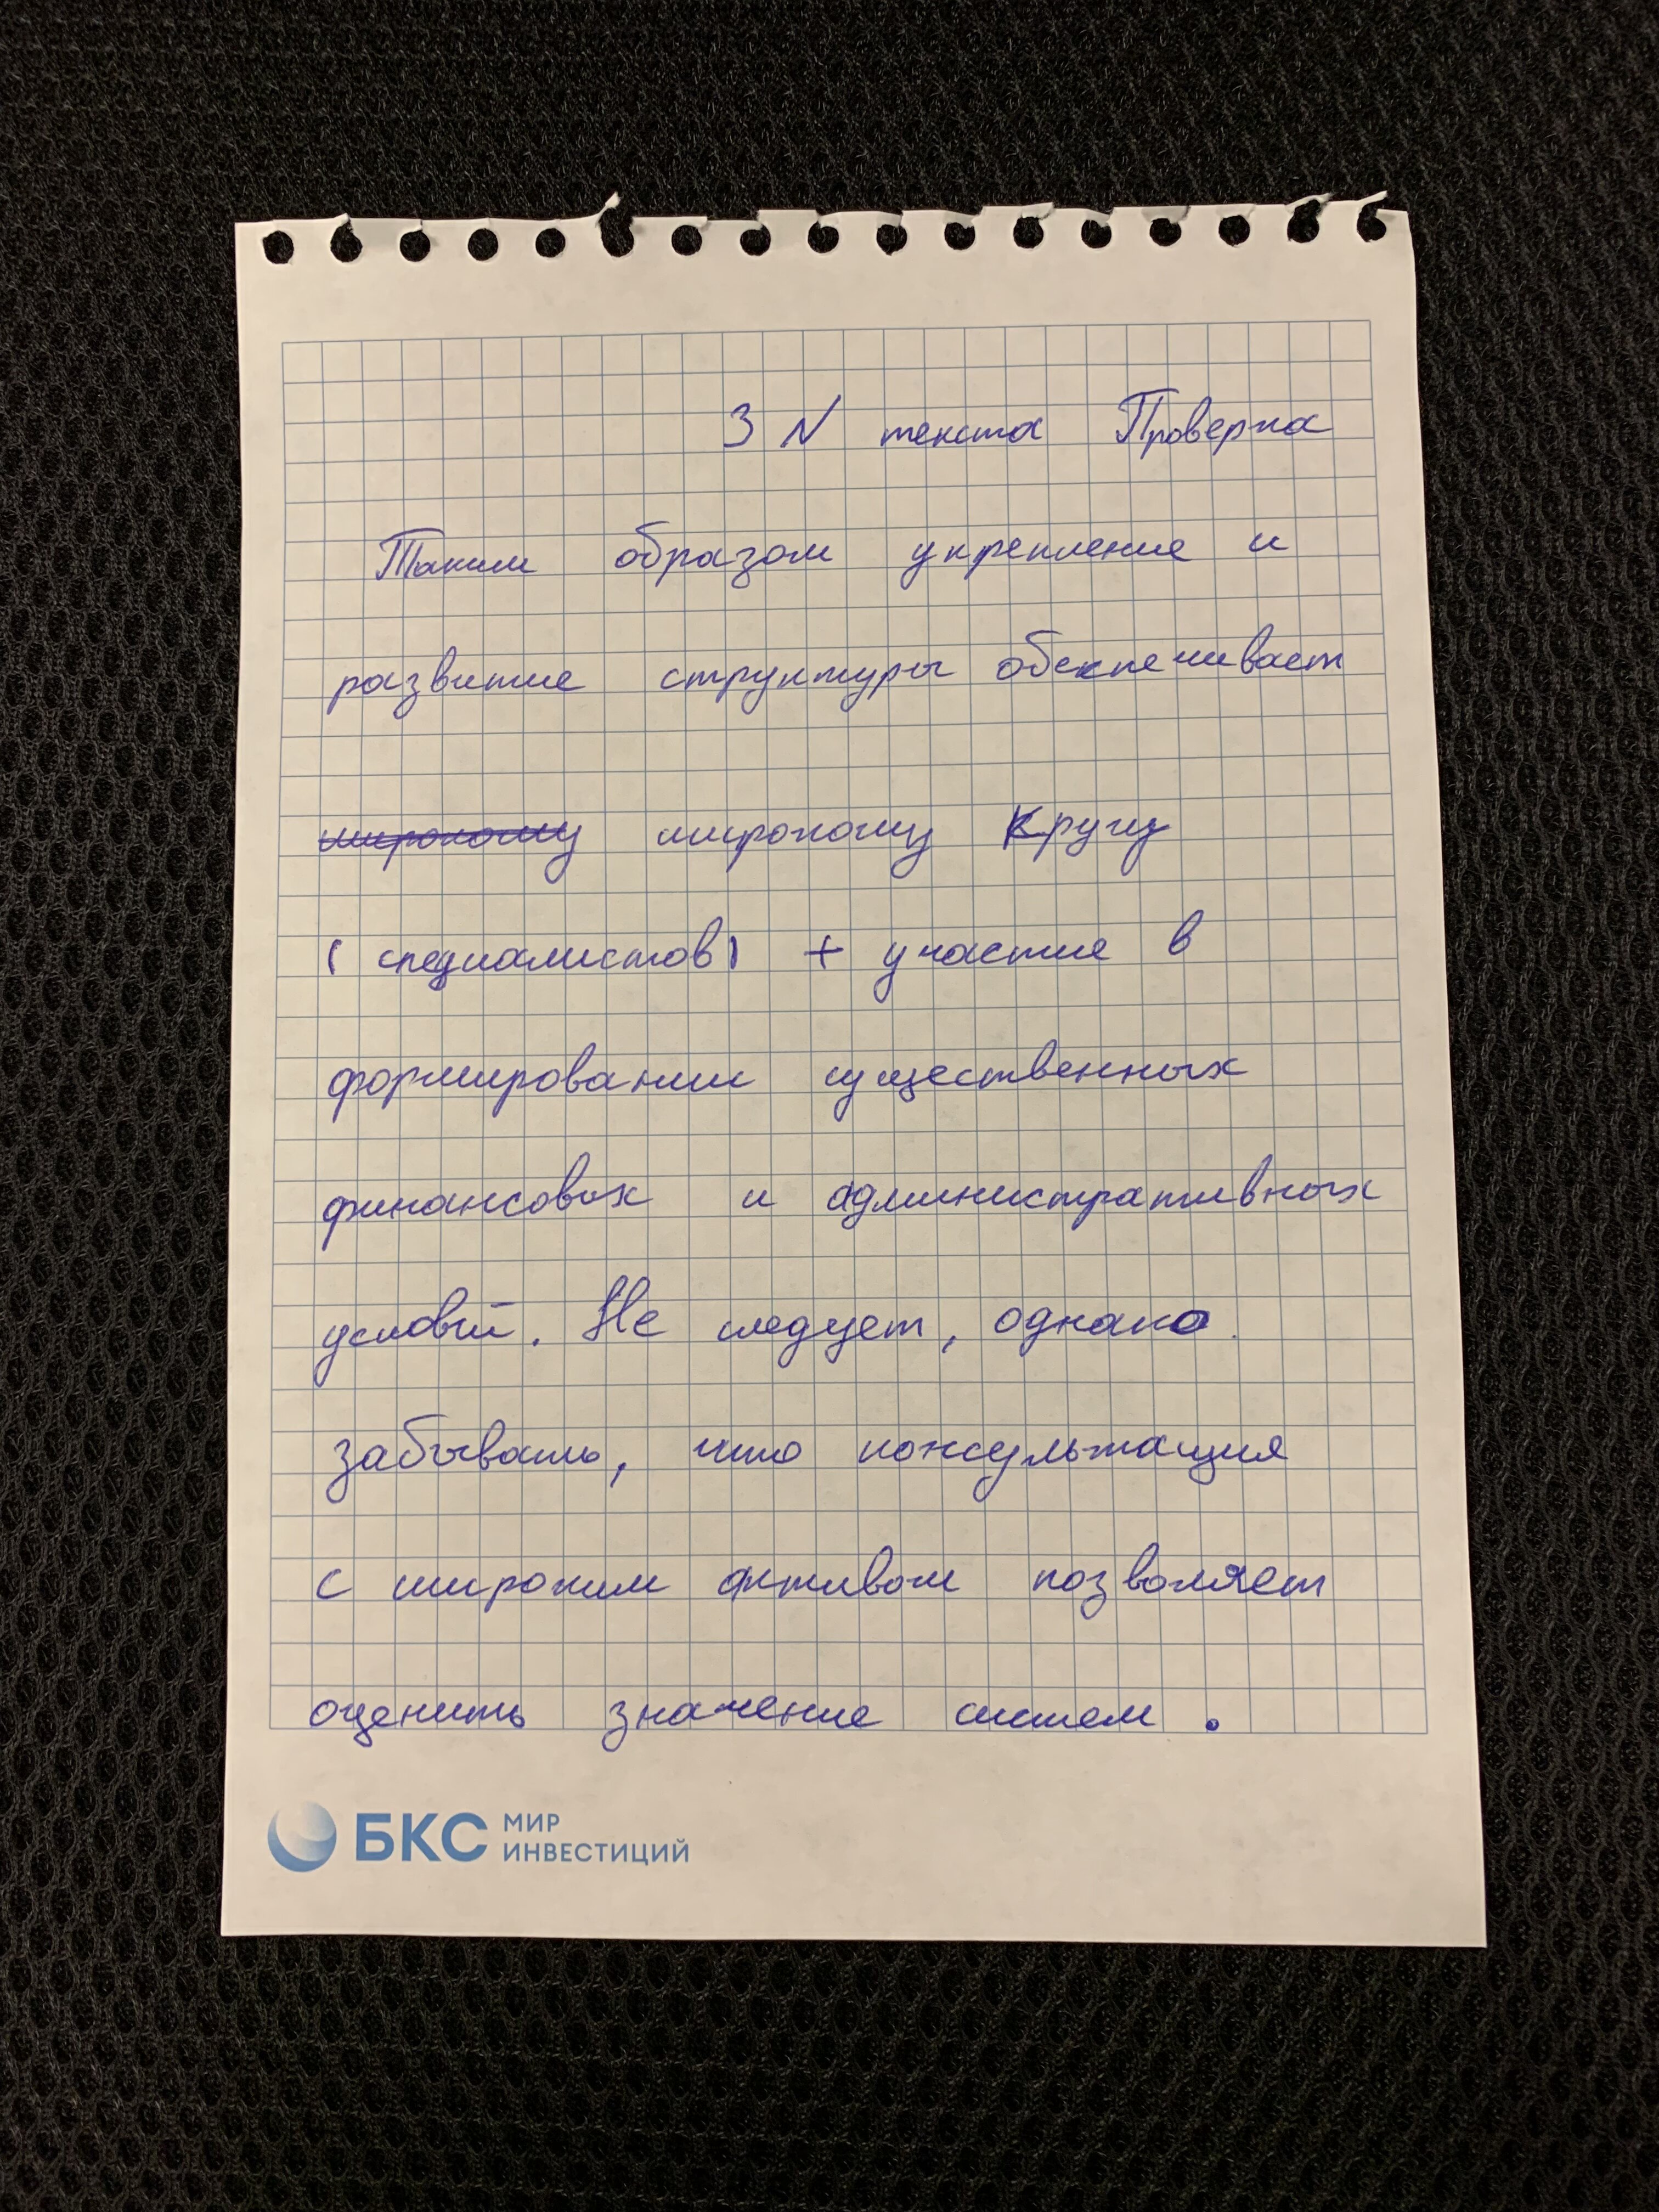 3 N текста Проверка
Таким образом укрепление и
развитие структуры обекпечивает
широкому широкому кругу
(специалистов) + участие в
формировании существенных
финансовых и административных
условий. Не следует, однако
забывать, что консультация
с широким активом позволяет
оценить значение систем.
БКС МИР
ИНВЕСТИЦИЙ